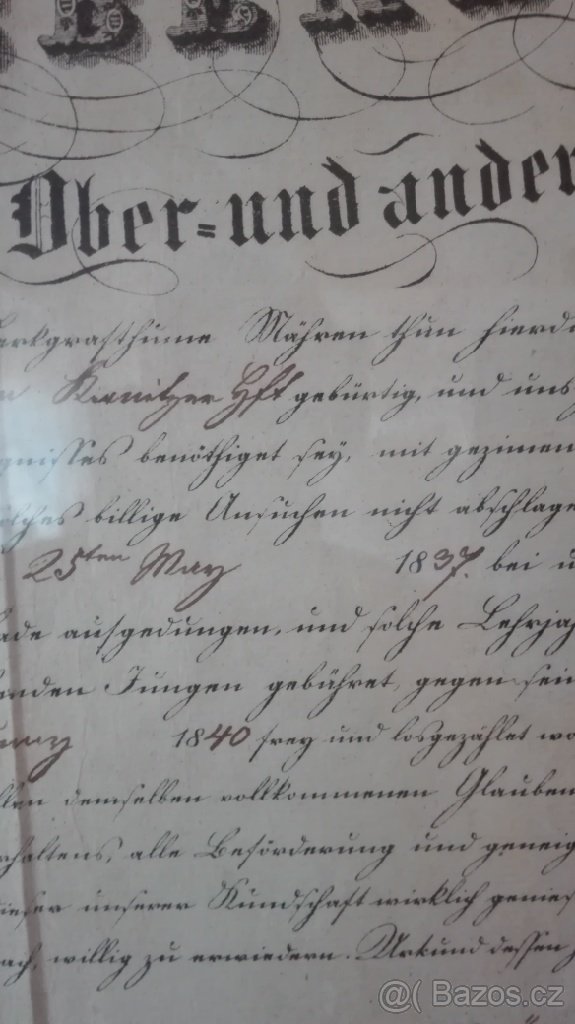 Ober- und ander
arkgrafthume Mähren thun hierd
Kanitzer Hft gebürtig, und uns
gnisses benöthiget sey, mit gezimen
olches billige Ansuchen nicht abschlage
25ten May 1837. bei u
ade ausgedungen, und solche Lehrja
enden Jungen gebühret, gegen sein
1840 frey und losgezählet wo
llen demselben vollkommenen Glauben
rhaltens, alle Beförderung und geneig
dieser unserer Kundschaft wirklich genies
ach, willig zu erwiedern. Urkund dessen
@( Bazos.cz